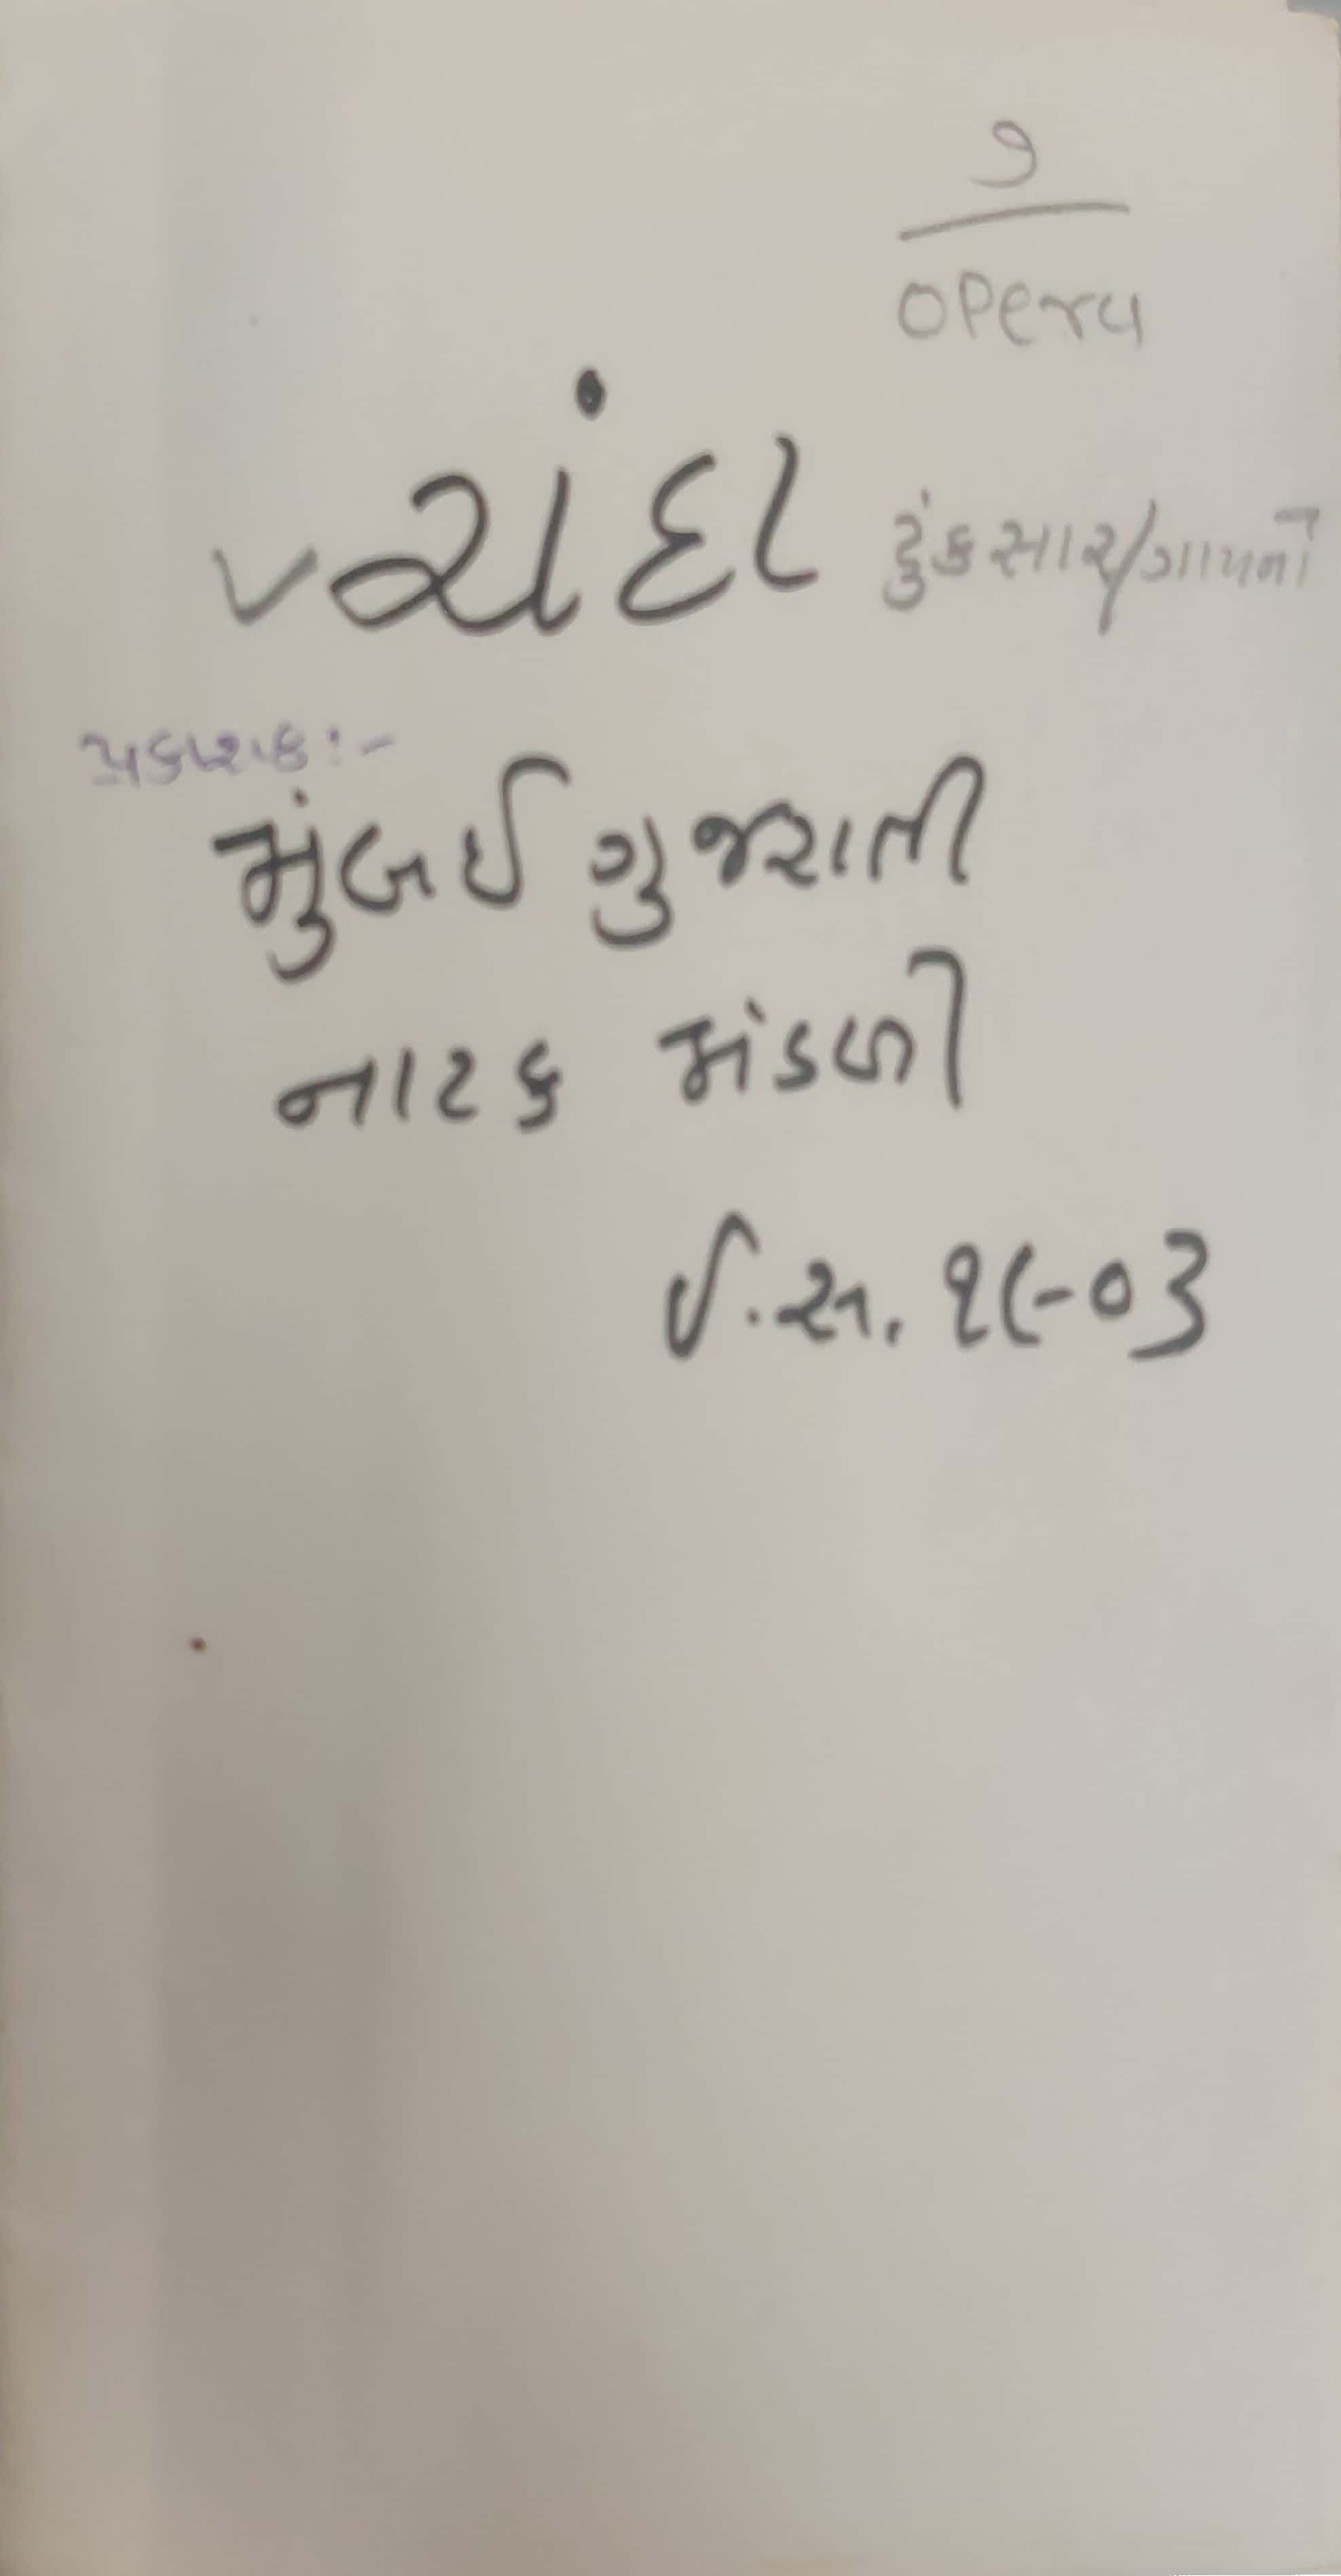 ૭
opera
ચંદા ટુંકસાર/ગાયનો
પ્રકાશક:-
મુંબઈ ગુજરાતી
નાટક મંડળી
ઈ.સ. ૧૯૦૩